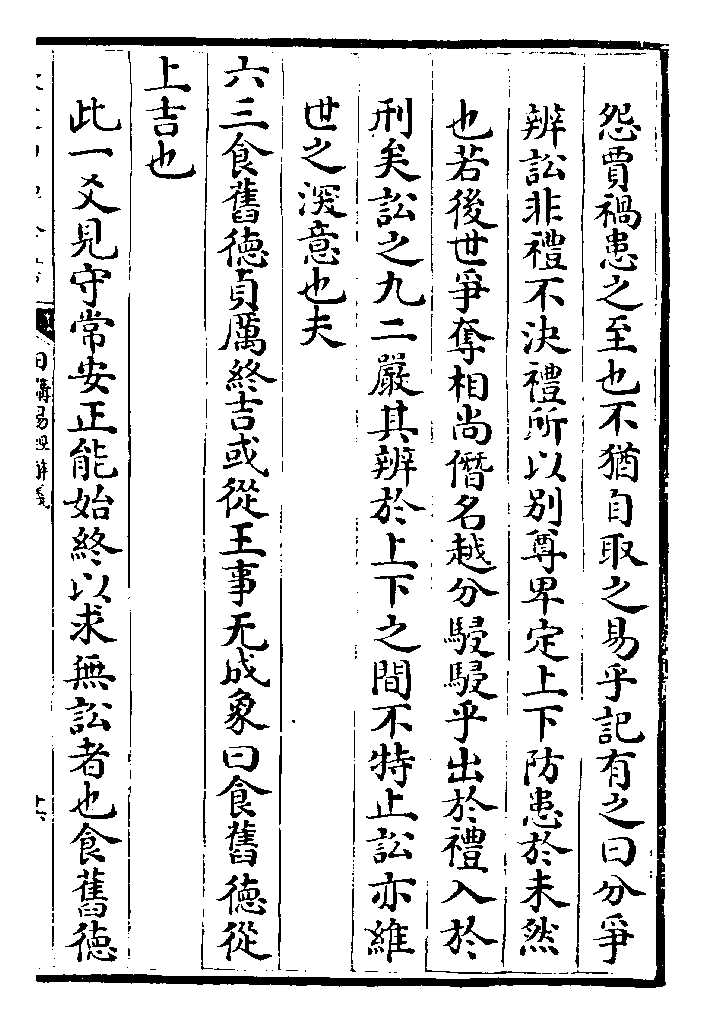 怨賈禍患之至也不猶自取之易乎記有之曰分爭
辨訟非禮不決禮所以别尊卑定上下防患於未然
也若後世爭奪相尚僭名越分駸駸乎出於禮入於
刑矣訟之九二嚴其辨於上下之間不特止訟亦維
世之深意也夫
六三食舊德貞厲終吉或從王事无成象曰食舊德從
上吉也
此一爻見守常安正能始終以求無訟者也食舊德
日講易經解義